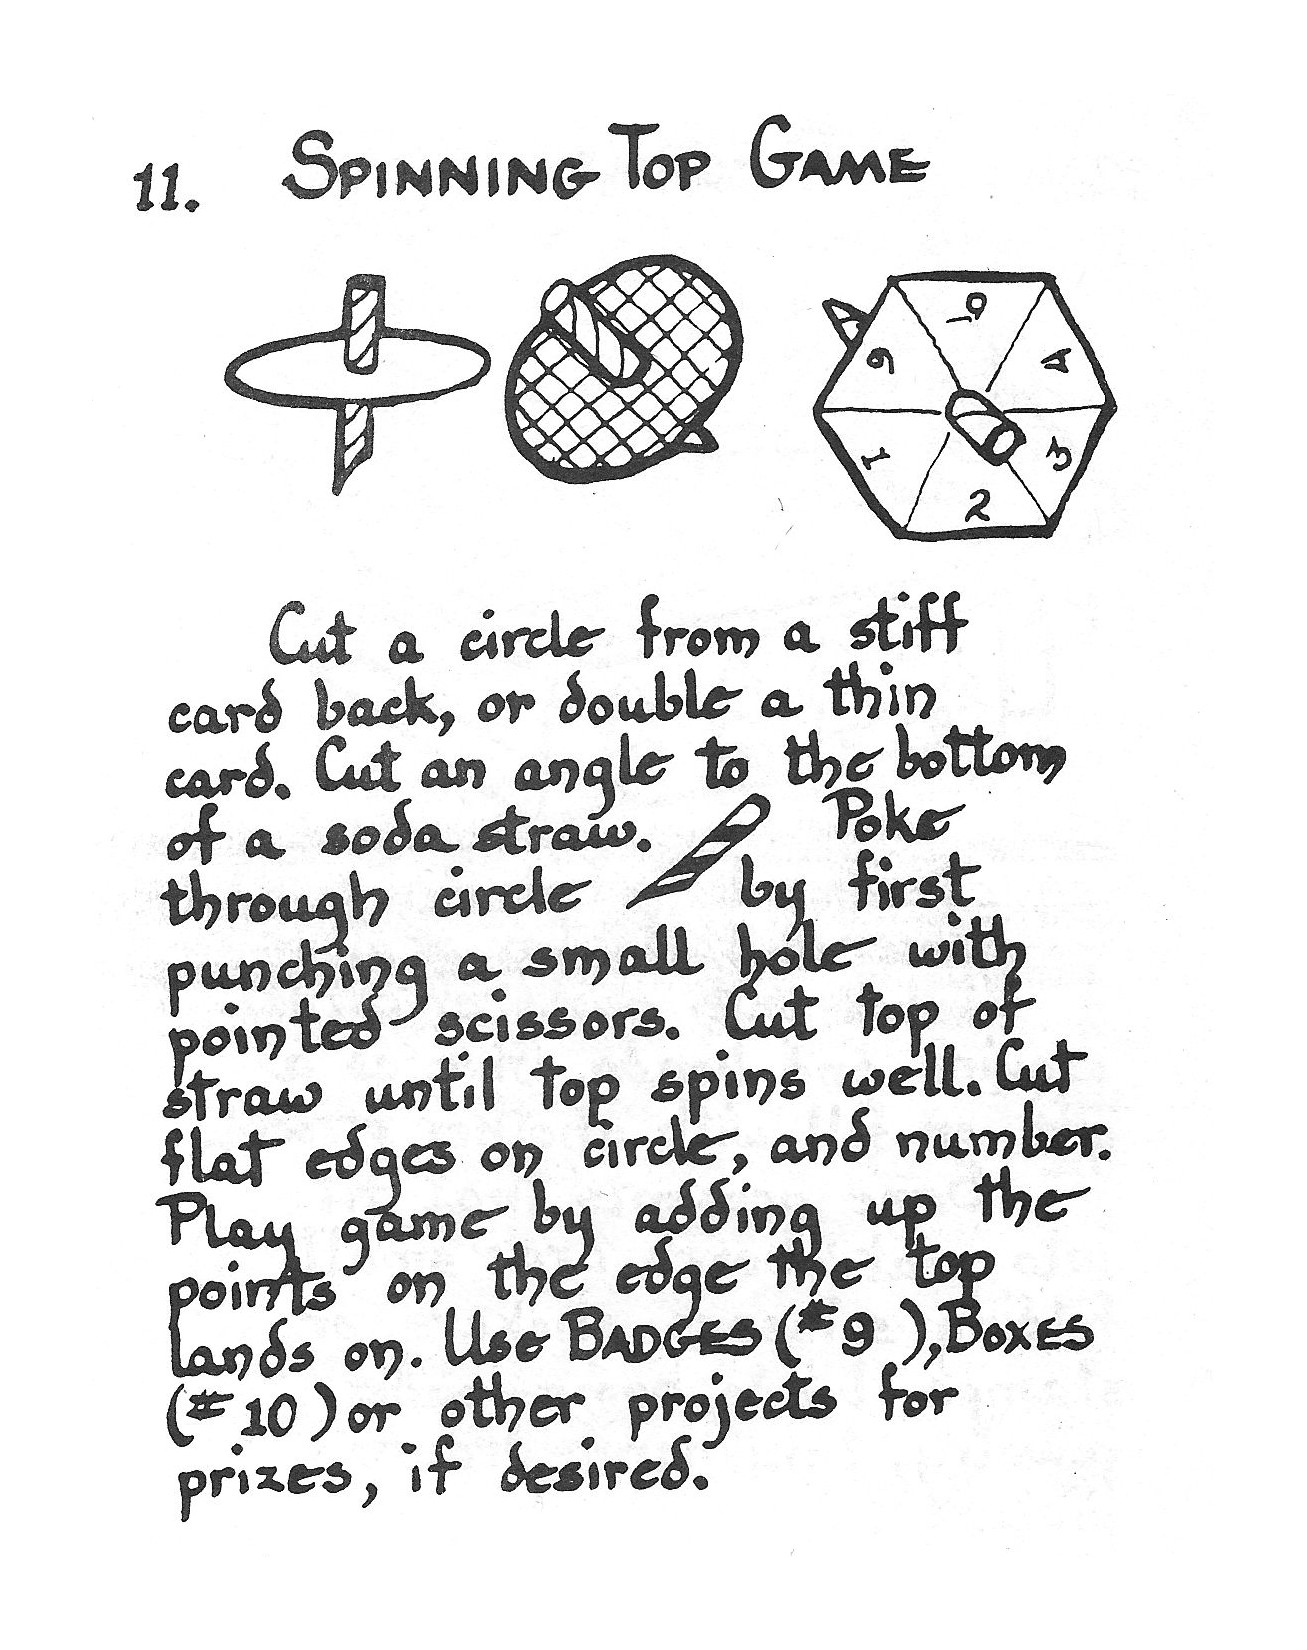 11. SPINNING TOP GAME
6
5
4
1
3
2
Cut a circle from a stiff
card back, or double a thin
card. Cut an angle to the bottom
of a soda straw. Poke
through circle by first
punching a small hole with
pointed scissors. Cut top of
straw until top spins well. Cut
flat edges on circle, and number.
Play game by adding up the
points on the edge the top
lands on. Use BADGES (#9 ), BOXES
(#10 ) or other projects for
prizes, if desired.